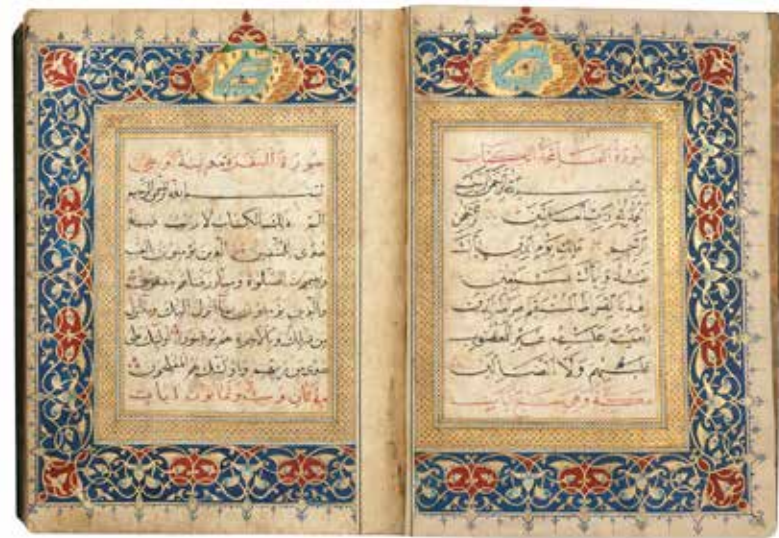 سورة الفاتحة الكتاب
بسم الله الرحمن الرحيم
الحمد لله رب العالمين الرحمن
الرحيم مالك يوم الدين إياك
نعبد وإياك نستعين
اهدنا الصراط المستقيم صراط الذين
أنعمت عليهم غير المغضوب
عليهم ولا الضالين
مكية وهي سبع آيات
سورة البقرة مدنية وهي
بسم الله الرحمن الرحيم
الم ذلك الكتاب لا ريب فيه
هدى للمتقين الذين يؤمنون بالغيب
ويقيمون الصلوة ومما رزقناهم ينفقون
والذين يؤمنون بما أنزل إليك وما أنزل
من قبلك وبالآخرة هم يوقنون أولئك على
هدى من ربهم وأولئك هم المفلحون
مائتان وست وثمانون آيات